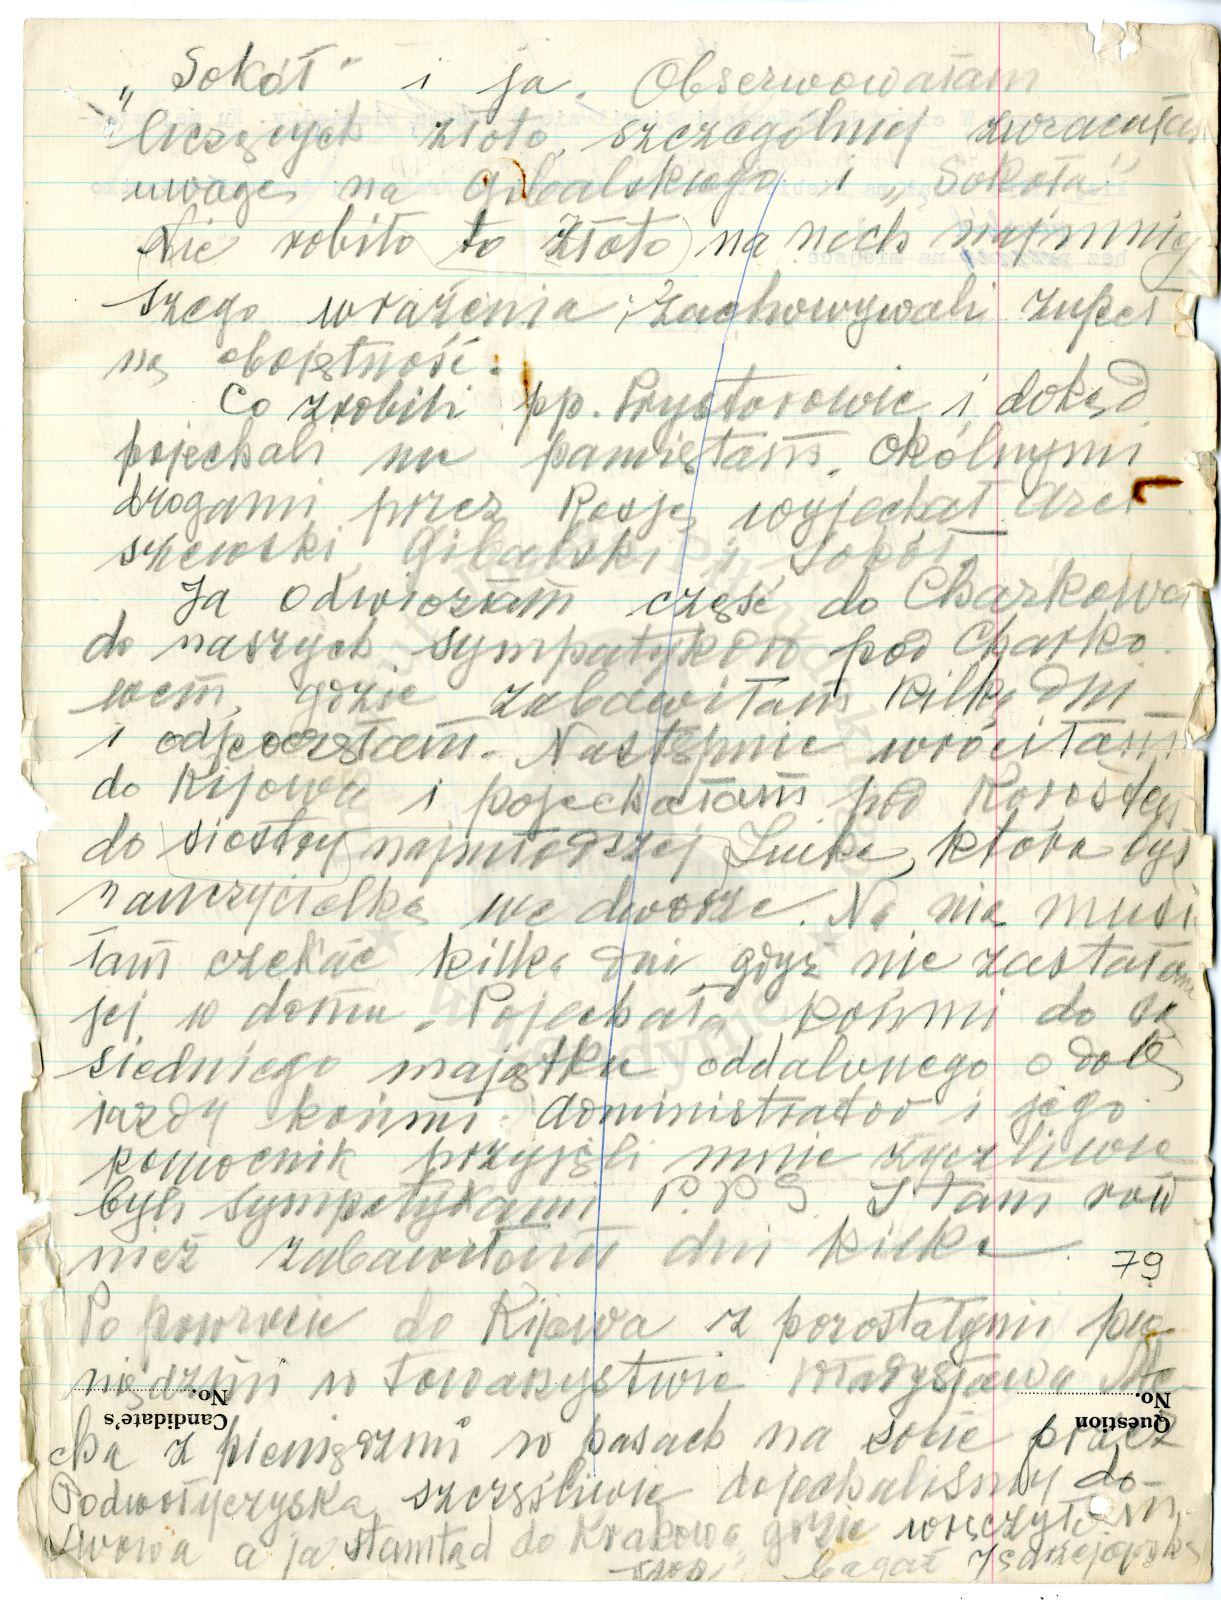 „Sokół" i ja. Obserwowałam
liczących złoto, szczególniej zwracałam
uwagę na Gibalskiego i „Sokoła"
Nie robiło to złoto na nich najmniej
szego wrażenia i zachowywali zupeł
ną obojętność.
Co zrobili pp. Prystorowie i dokąd
pojechali nie pamiętam. Okólnymi
drogami przez Rosję wyjechał Arci
szewski, Gibalski i Sokół.
Ja odwiozłam część do Charkowa
do naszych sympatyków pod Charko
wem, gdzie zabawiłam kilka dni
i odpoczęłam. Następnie wróciłam
do Kijowa i pojechałam pod Korosteń
do siostry najmłodszej Lucki, która był
nauczycielką we dworze. Na nią musi
łam czekać kilka dni gdyż nie zastałam
jej w domu. Pojechała końmi do są
siedniego majątku oddalonego o dobę
jazdy końmi. Administrator i jego
pomocnik przyjęli mnie życzliwie
byli sympatykami P.P.S. I tam rów
nież zabawiłam dni kilka.
79
Po powrocie do Kijowa z pozostałymi pie
niędzmi w towarzystwie Władysława
No.
No.
Candidate's
Question
cka z pieniędzmi w pasach na sobie przez
Podwołyczyska szczęśliwie dojechaliśmy do
Lwowa a ja stamtąd do Krakowa gdzie wręczyłam
bagaż